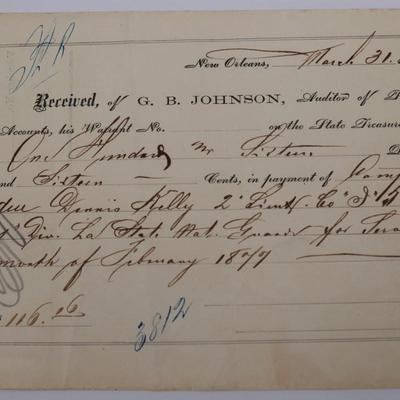 New Orleans, March 31.
Received, of G. B. JOHNSON, Auditor of P
Accounts, his Warrant No. on the State Treasure
One Hundred & Sixteen D
nd Sixteen Cents, in payment of Comp
due Dennis Kelly 2" Lieut. Co "I" 5
Div. La State Nat. Guard for Serv
month of February 1879
116.16
3812